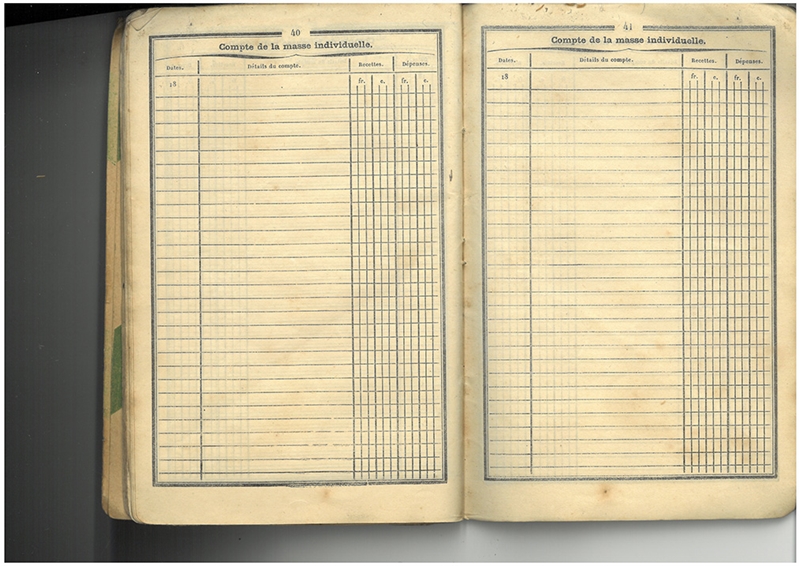 40
Compte de la masse individuelle.
Dates. Détails du compte. Recettes. Dépenses.
18 fr. c. fr. c.
41
Compte de la masse individuelle.
Dates. Détails du compte. Recettes. Dépenses.
18 fr. c. fr. c.